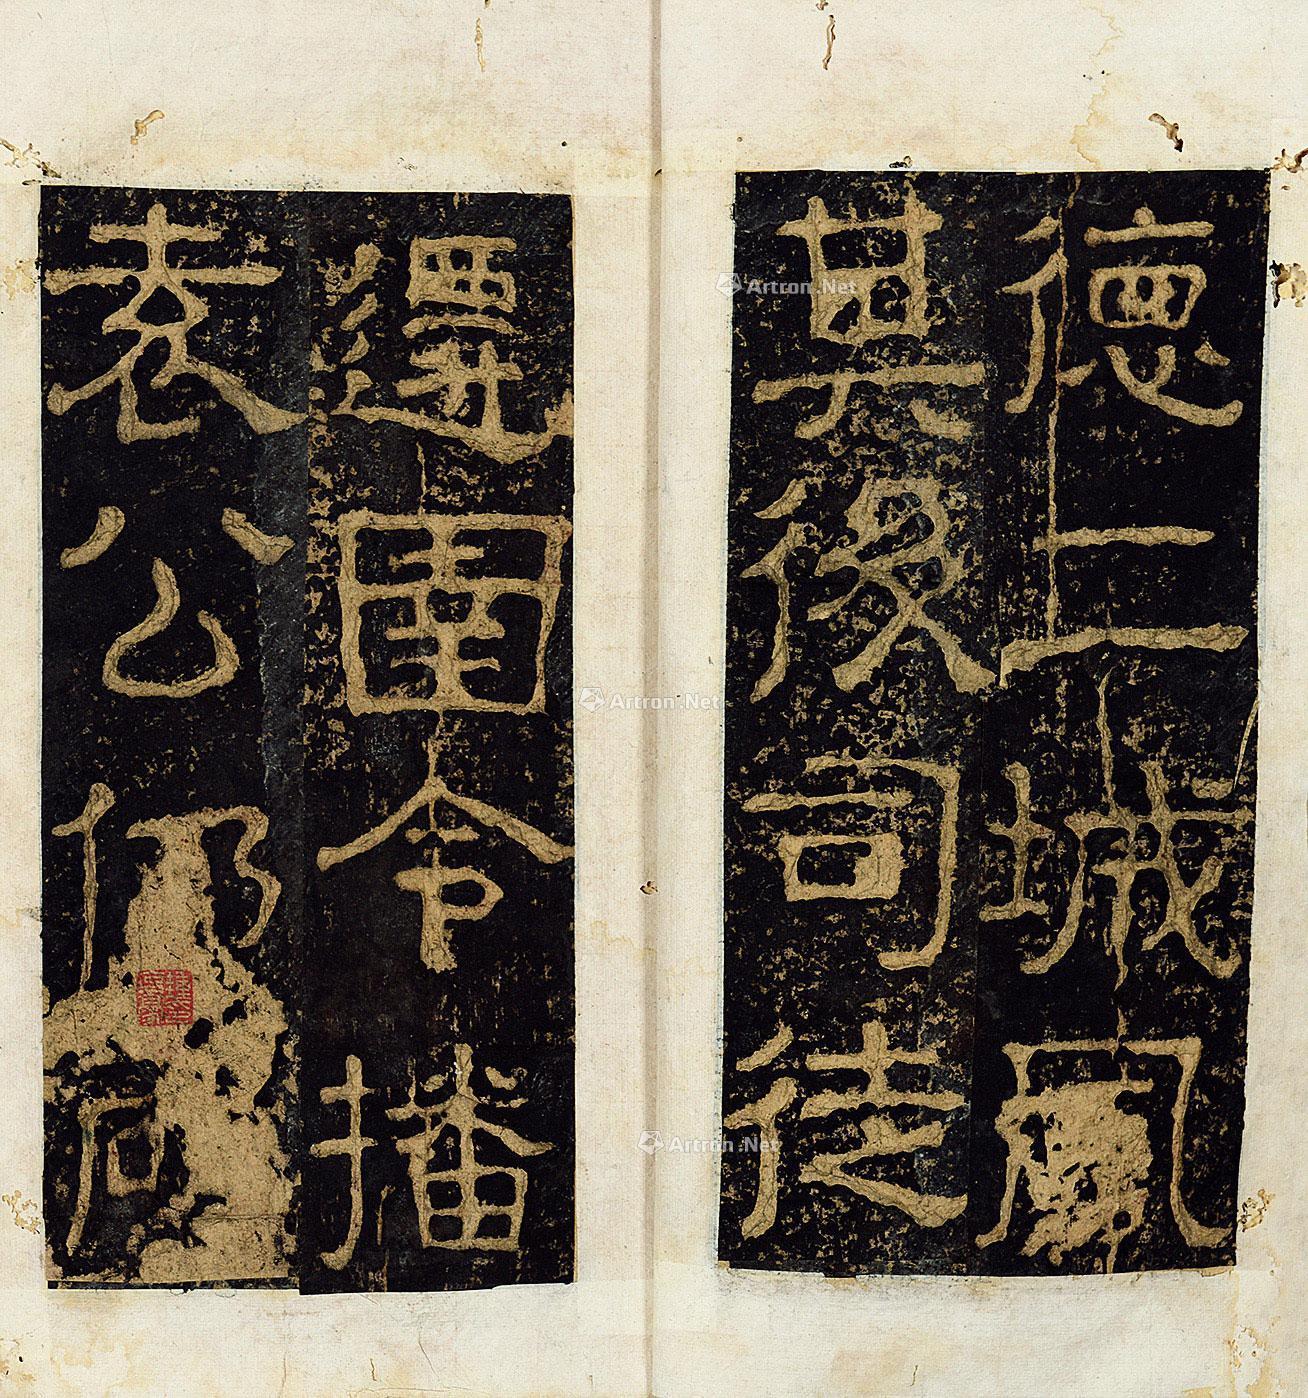 德二城風
其後司徒
遷圉令播
袁公仍
Artron.Net
Artron.Net
Artron.Net